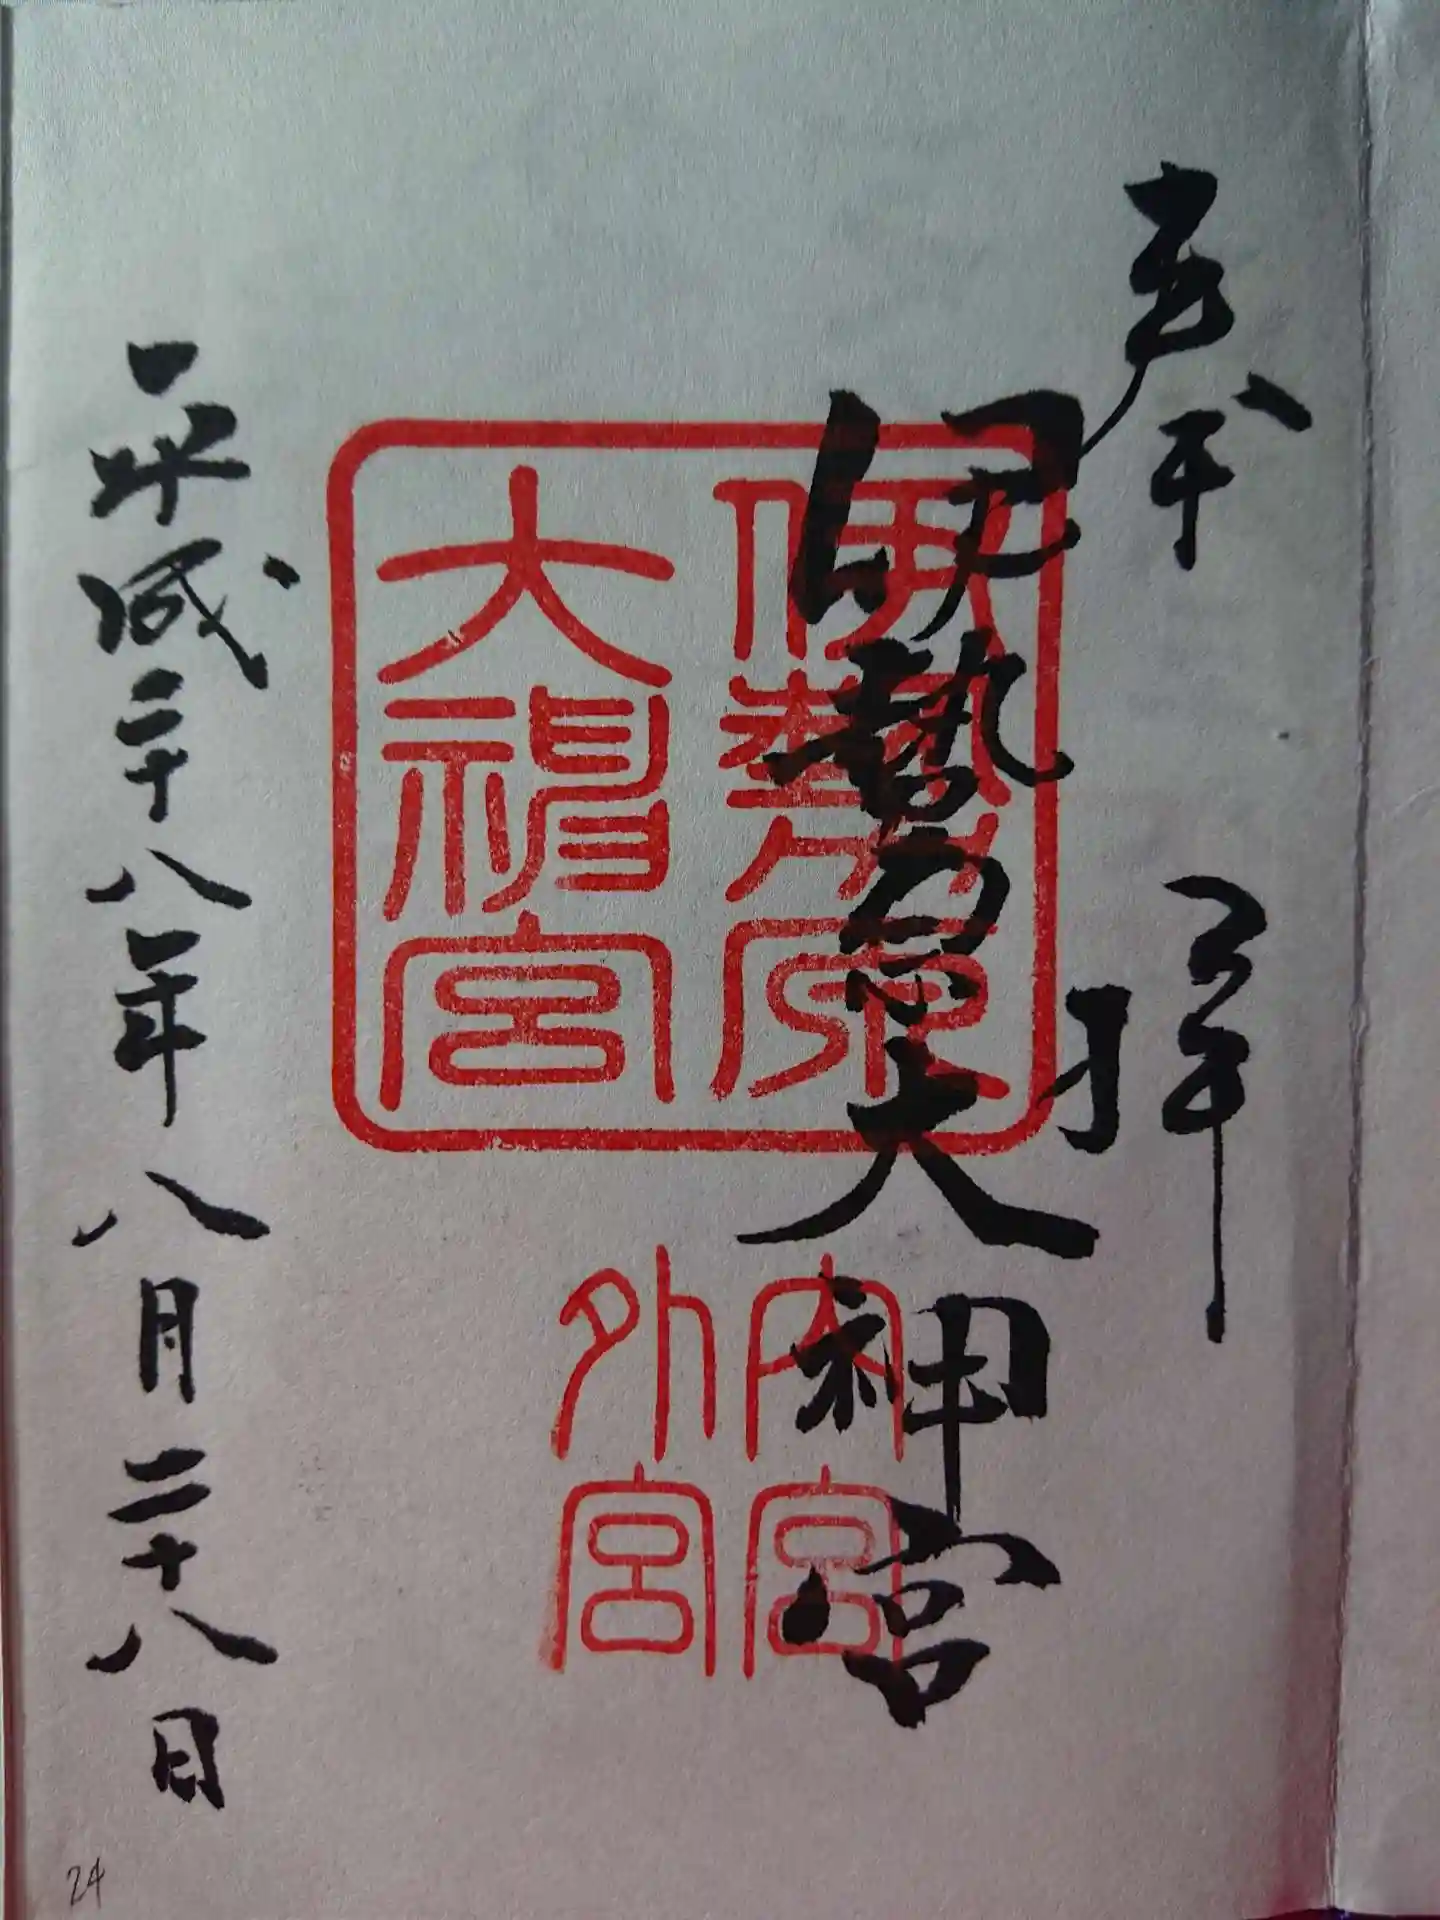 奉拝
伊勢原大神宮
伊勢原
大神宮
内宮
外宮
平成二十八年八月二十八日
24